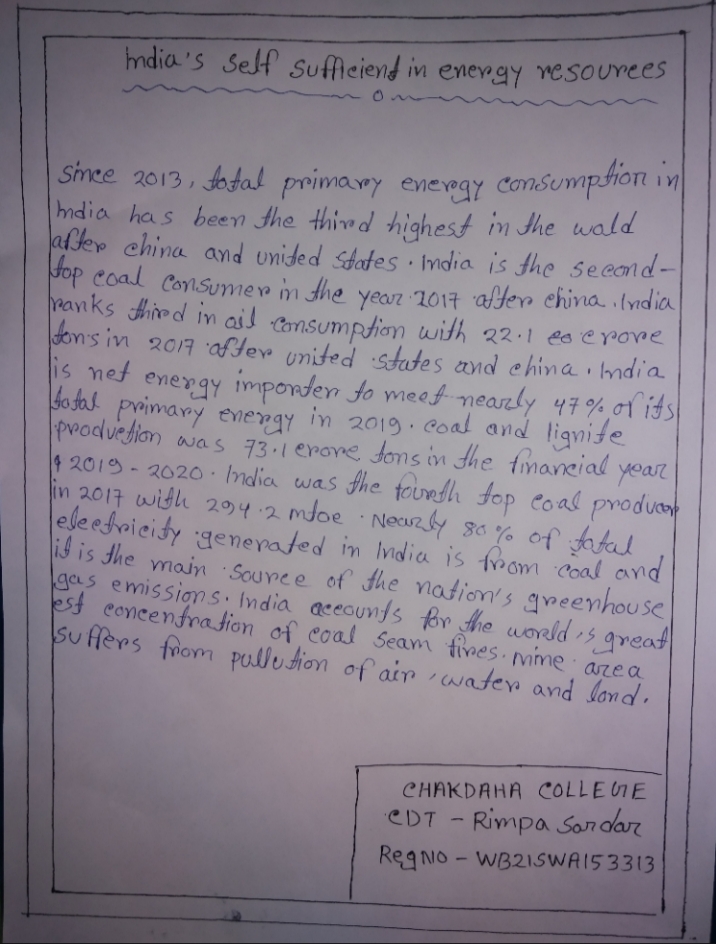 India's self sufficient in energy resources
since 2013, total primary energy consumption in
India has been the third highest in the wald
after china and united states. India is the second-
top coal consumer in the year 2017 after china. India
ranks third in oil consumption with 22.1 crore
tons in 2017 after united states and china. India
is net energy importer to meet nearly 47% of its
total primary energy in 2019. coal and lignite
production was 73.1 crore tons in the financial year
2019-2020. India was the fourth top coal producer
in 2017 with 294.2 mtoe. Nearly 80% of total
electricity generated in India is from coal and
it is the main source of the nation's greenhouse
gas emissions. India accounts for the world's great
est concentration of coal seam fires. mine area
suffers from pullution of air, water and land.
CHAKDAHA COLLEGE
CDT - Rimpa Sardar
Reg No - WB21SWA153313